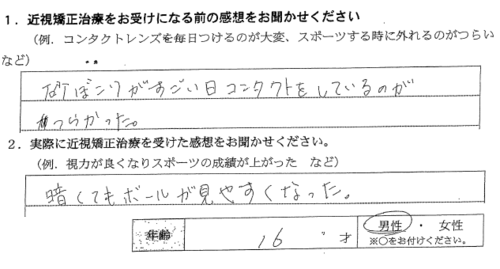 1. 近視矯正治療をお受けになる前の感想をお聞かせください
(例. コンタクトレンズを毎日つけるのが大変、スポーツする時に外れるのがつらい
など)
砂ぼこりがすごい日コンタクトをしているのが
つらかった。
2. 実際に近視矯正治療を受けた感想をお聞かせください。
(例. 視力が良くなりスポーツの成績が上がった など)
暗くてもボールが見やすくなった。
年齢 16 才 男性 ・ 女性
※○をお付けください。